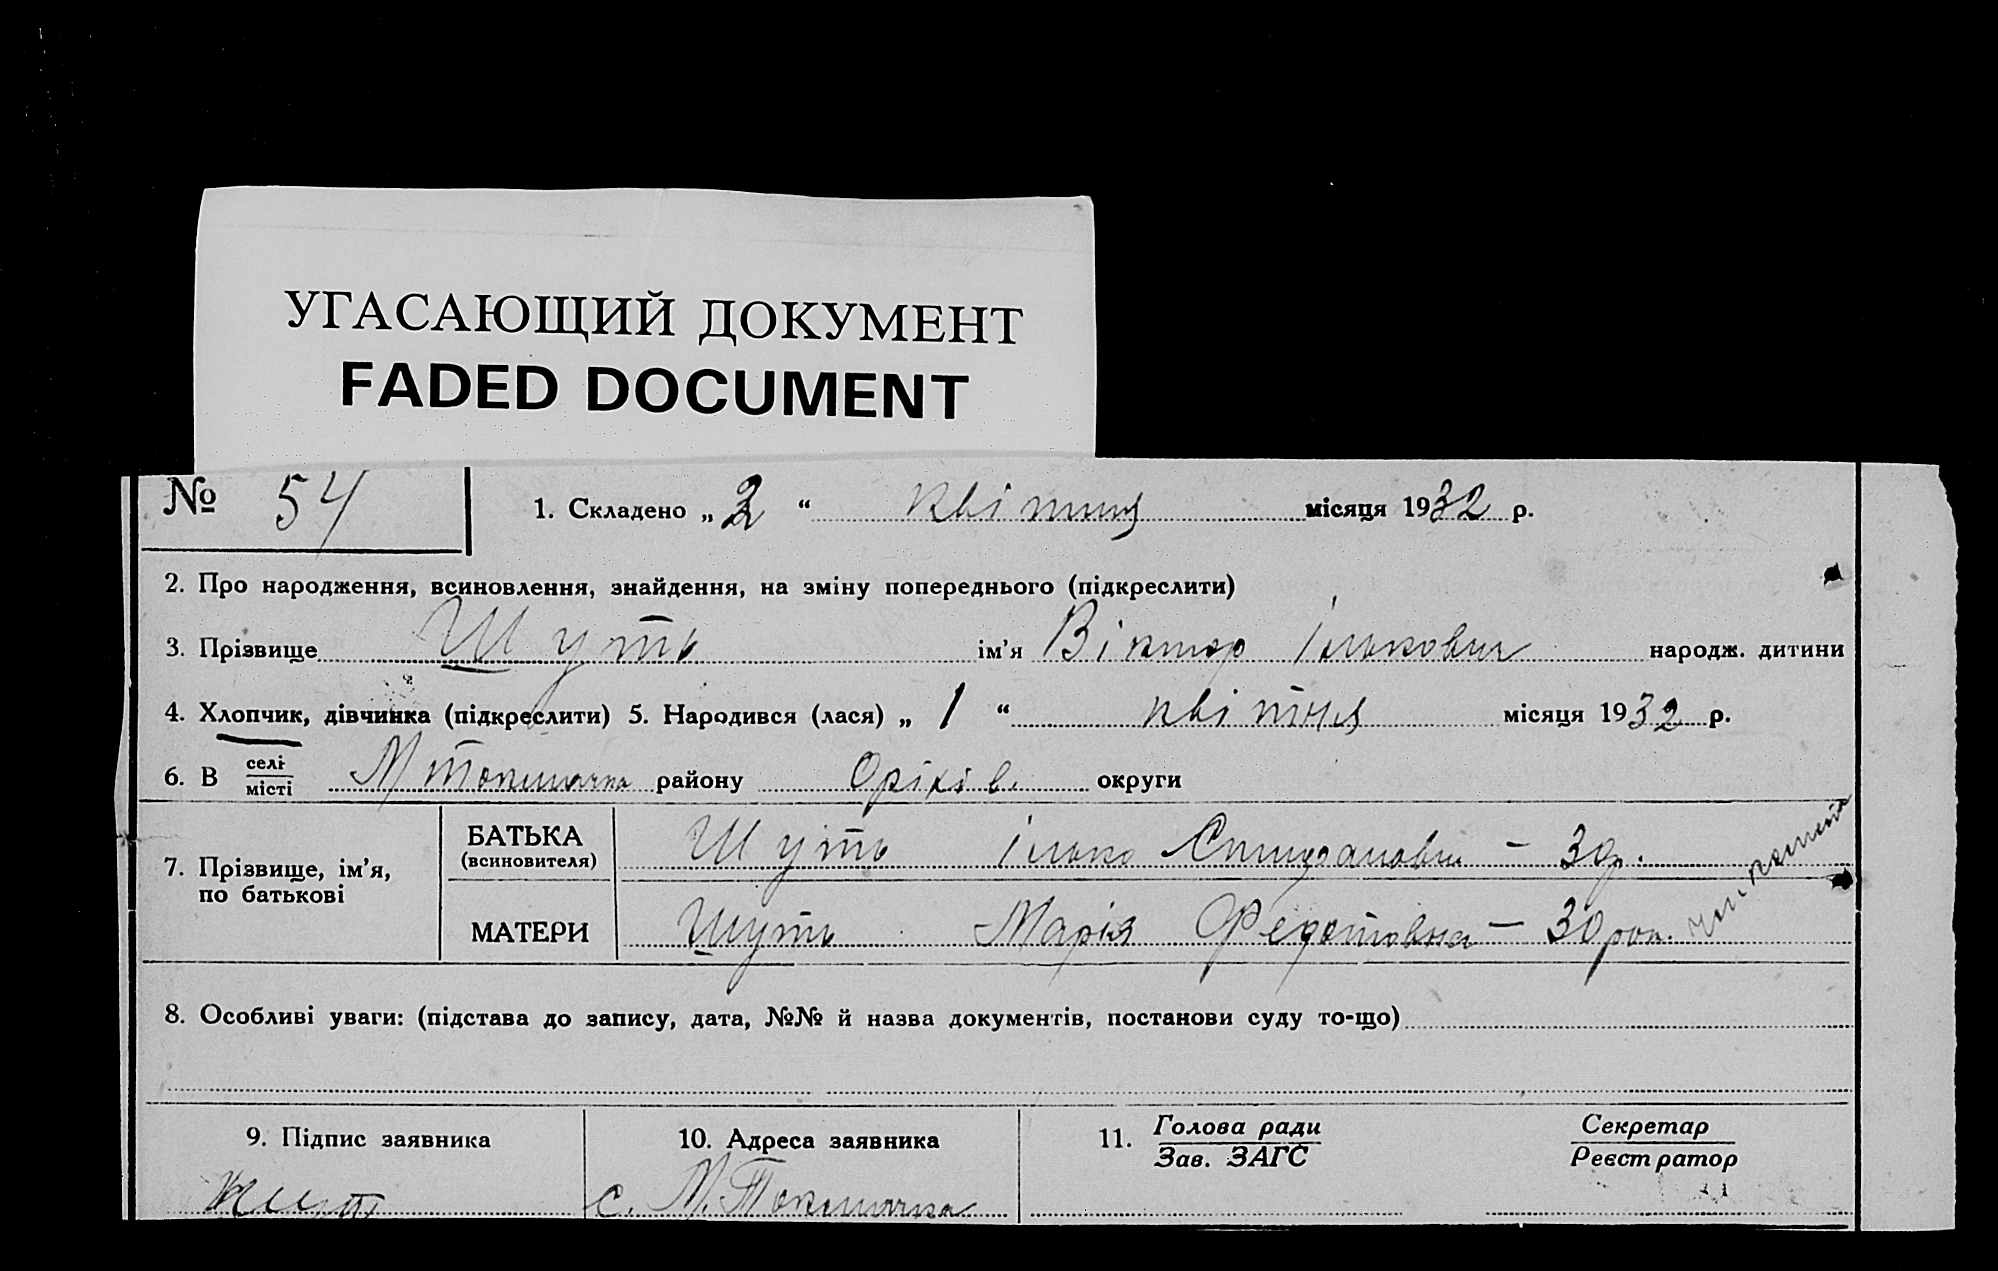 УГАСАЮЩИЙ ДОКУМЕНТ
FADED DOCUMENT
№ 54
1. Складено „ 2 “ квітня місяця 1932 р.
2. Про народження, всиновлення, знайдення, на зміну попереднього (підкреслити)
3. Прізвище Шуть ім’я Віктор Ількович народж. дитини
4. Хлопчик, дівчинка (підкреслити) 5. Народився (лася) „ 1 “ квітня місяця 1932 р.
6. В селі місті М Токмачка району Оріхів. округи
7. Прізвище, ім’я, по батькові
БАТЬКА (всиновителя) Шуть Ілько – 30р.
МАТЕРИ Шуть Марія Федотовна – 30 рок.
8. Особливі уваги: (підстава до запису, дата, №№ й назва документів, постанови суду то-що)
9. Підпис заявника
10. Адреса заявника
с. М. Токмачка
11. Голова ради Зав. ЗАГС
Секретар Реєстратор